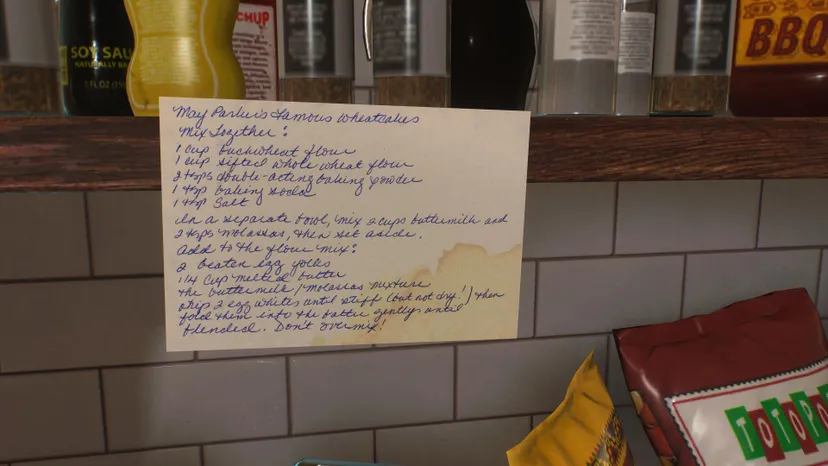 SOY SAU
NATURALLY BR
1 FL OZ (15
CHUP
BBQ
May Parker's Famous Wheatcakes
Mix Together:
1 cup buckwheat flour
1 cup sifted whole wheat flour
2 tsps double-acting baking powder
1 tsp baking soda
1 tsp Salt
In a separate bowl, mix 2 cups buttermilk and
2 tsps molasses, then set aside.
add to the flour mix:
2 beaten egg yolks
1/4 cup melted butter
the buttermilk/molasses mixture
whip 2 egg whites until stiff (but not dry!) then
fold them into the batter gently until
blended. Don't overmix!
TOTOPO